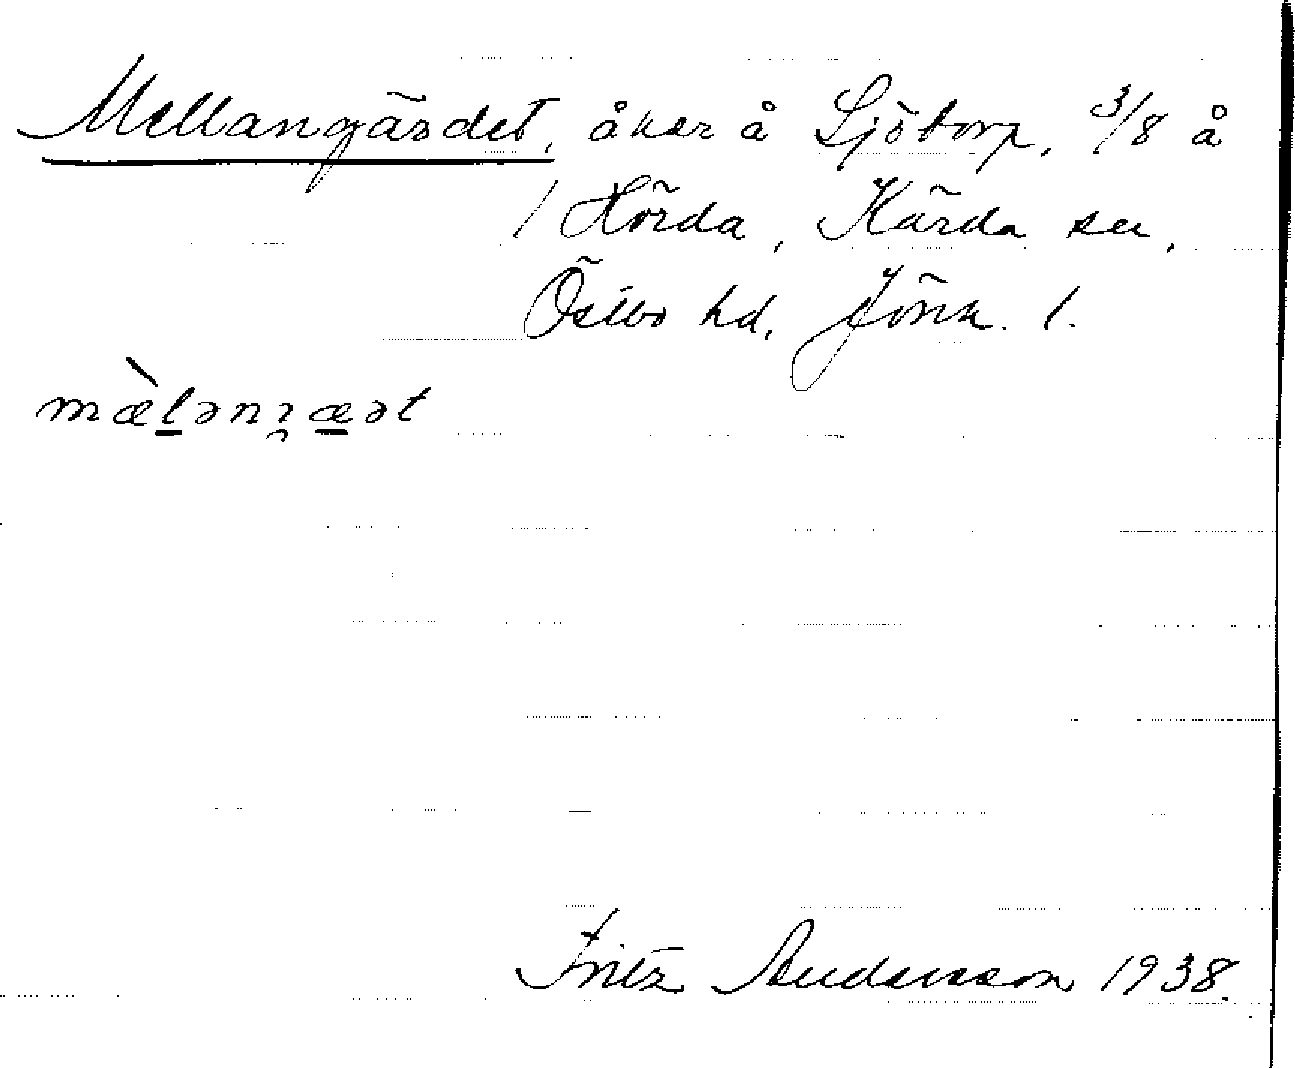 Mellangärdet, åker å Sjötorp, 3/8 å
1 Hörda, Kärda sn,
Östbo hd, Jönk. l.
mæ̀lənɜæət
Fritz Andersson 1938.